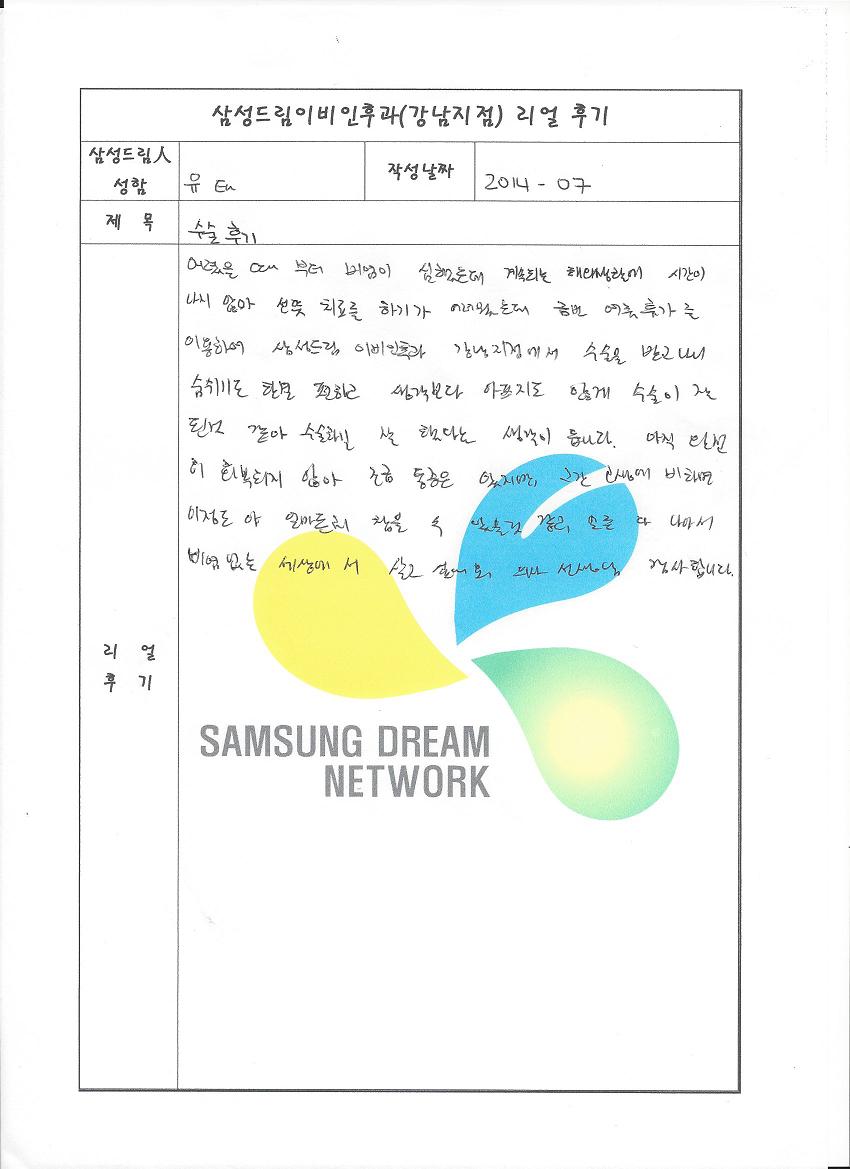 삼성드림이비인후과(강남지점) 리얼 후기
삼성드림人
성함
유
작성날짜
2014 - 07
제 목
수술 후기
어렸을 때 부터 비염이 심했는데 계속되는 해외생활에 시간이
나지 않아 선뜻 치료를 하기가 어려웠는데 금번 여름휴가를
이용하여 삼성드림 이비인후과 강남지점에서 수술을 받고나니
숨쉬기도 한결 편하고 생각보다 아프지도 않게 수술이 잘
된것 같아 수술하길 잘 했다는 생각이 듭니다. 아직 완전
히 회복되지 않아 조금 통증은 있지만, 그간 고생에 비하면
이정도 야 얼마든지 참을 수 있을것 같고, 모른 다 나아서
비염 없는 세상에 서 살고 싶네요. 의사 선생님 감사합니다.
리 얼
후 기
SAMSUNG DREAM
NETWORK